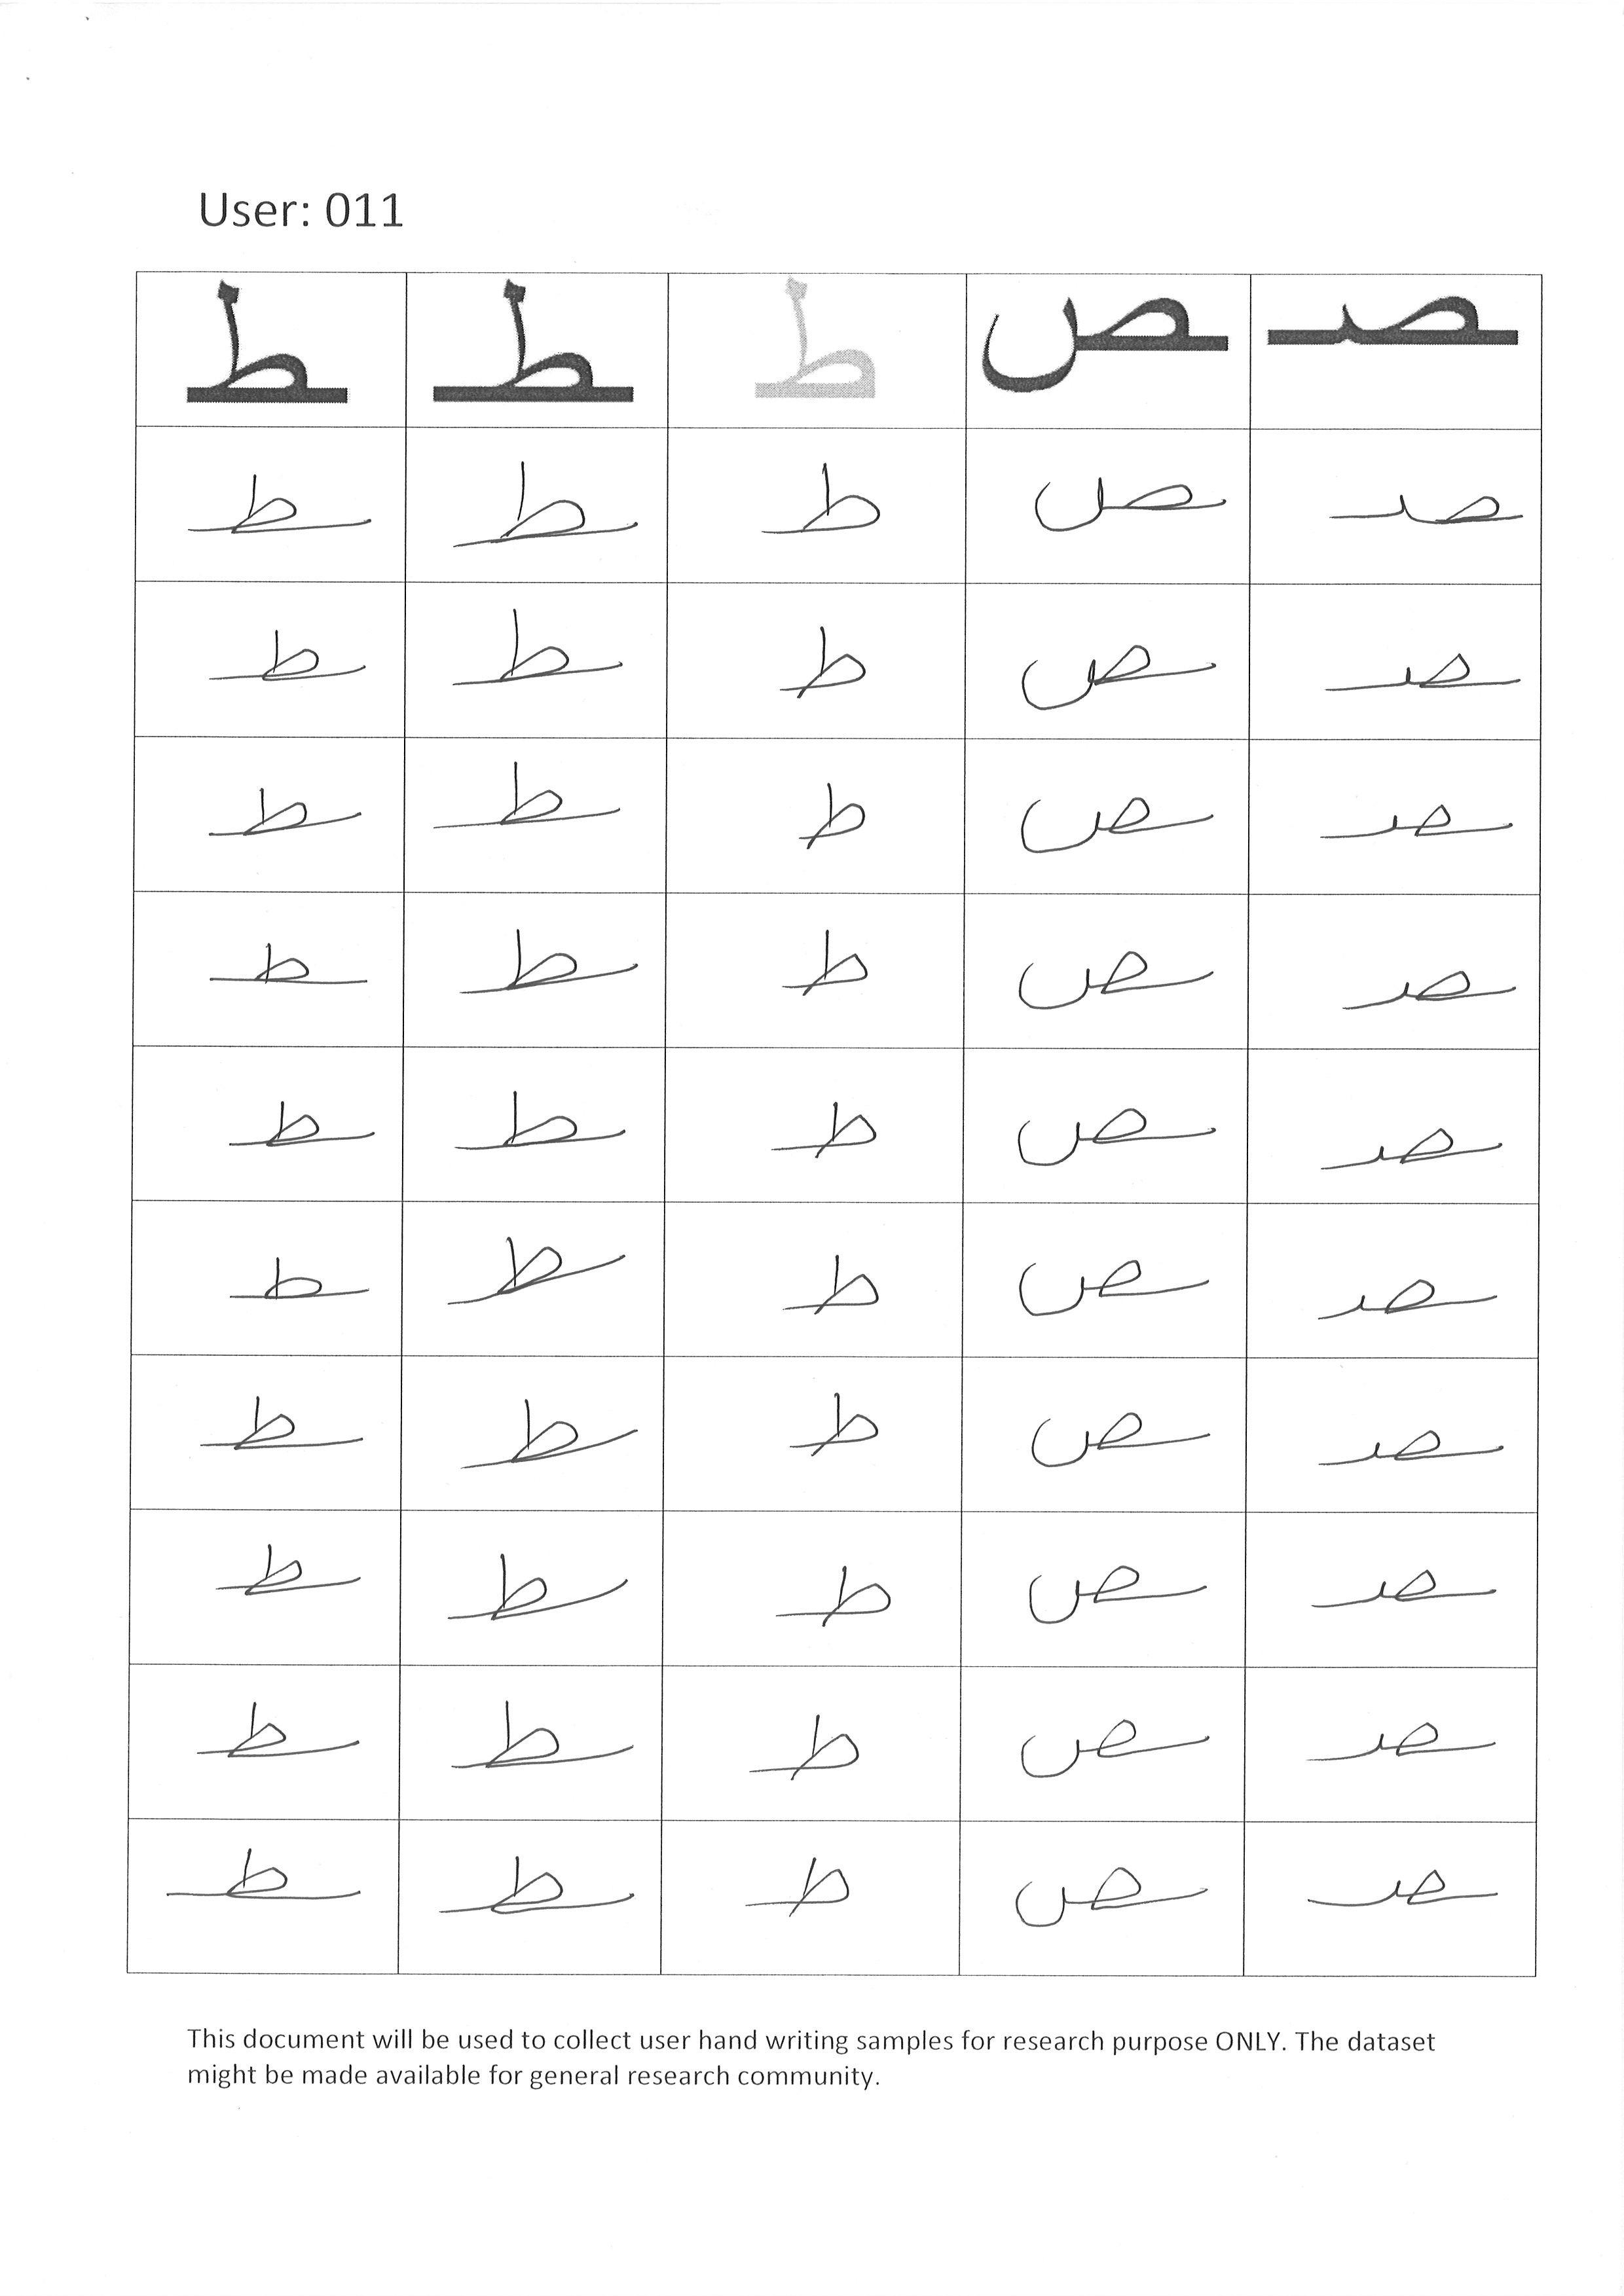 User: 011
ـصـ ـص طـ ـطـ ـط
ـصـ ـص طـ ـطـ ـط
ـصـ ـص طـ ـطـ ـط
ـصـ ـص طـ ـطـ ـط
ـصـ ـص طـ ـطـ ـط
ـصـ ـص طـ ـطـ ـط
ـصـ ـص طـ ـطـ ـط
ـصـ ـص طـ ـطـ ـط
ـصـ ـص طـ ـطـ ـط
ـصـ ـص طـ ـطـ ـط
ـصـ ـص طـ ـطـ ـط
This document will be used to collect user hand writing samples for research purpose ONLY. The dataset
might be made available for general research community.